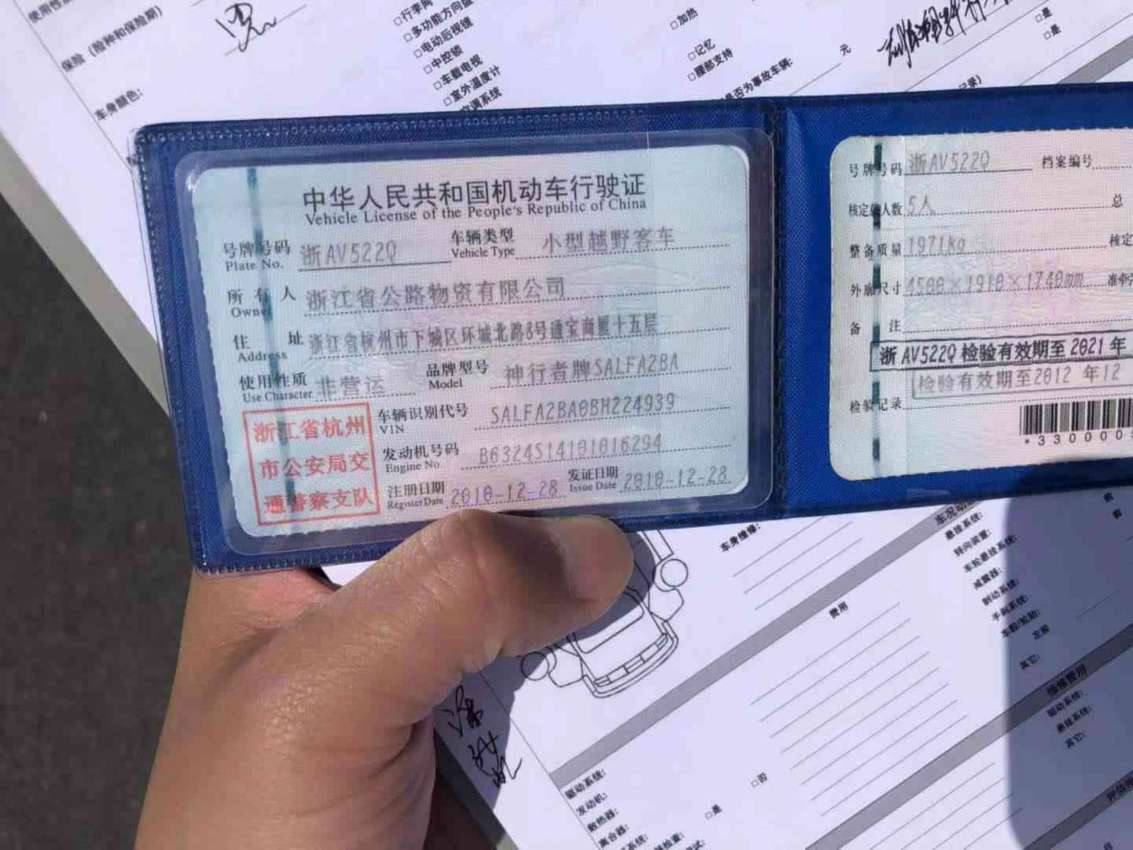 保险（险种和保险期）
车身颜色：
□多功能方向盘
□电动后视镜
□中控锁
□车载电视
□室外温度计
□加热
□记忆
□腰部支持
元
是否为事故车辆：
□是
□是
中华人民共和国机动车行驶证
Vehicle License of the People's Republic of China
号牌号码 浙AV522Q 车辆类型 小型越野客车
Plate No. Vehicle Type
所有人 浙江省公路物资有限公司
Owner
住址 浙江省杭州市下城区环城北路8号通宝商厦十五层
Address
使用性质 非营运 品牌型号 神行者牌SALFA2BA
Use Character Model
浙江省杭州
市公安局交
通警察支队
车辆识别代号 SALFA2BA0BH224939
VIN
发动机号码 B6324S14101016294
Engine No.
注册日期 2010-12-28 发证日期 2010-12-28
Register Date Issue Date
号牌号码 浙AV522Q 档案编号
核定载人数 5人 总
整备质量 1971kg 核定
外廓尺寸 4500×1910×1740mm
备注
浙AV522Q检验有效期至2021年
检验有效期至2012 年12
检验记录
*3300009
车身维修：
费用
悬挂系统：
转向装置：
车轮悬挂系统：
减震器：
制动系统：
手刹系统：
左前
其它：
维修费用
驱动系统：
悬挂系统：
其它：
驱动系统：
发动机：
散热器：
离合器：
□是
□否